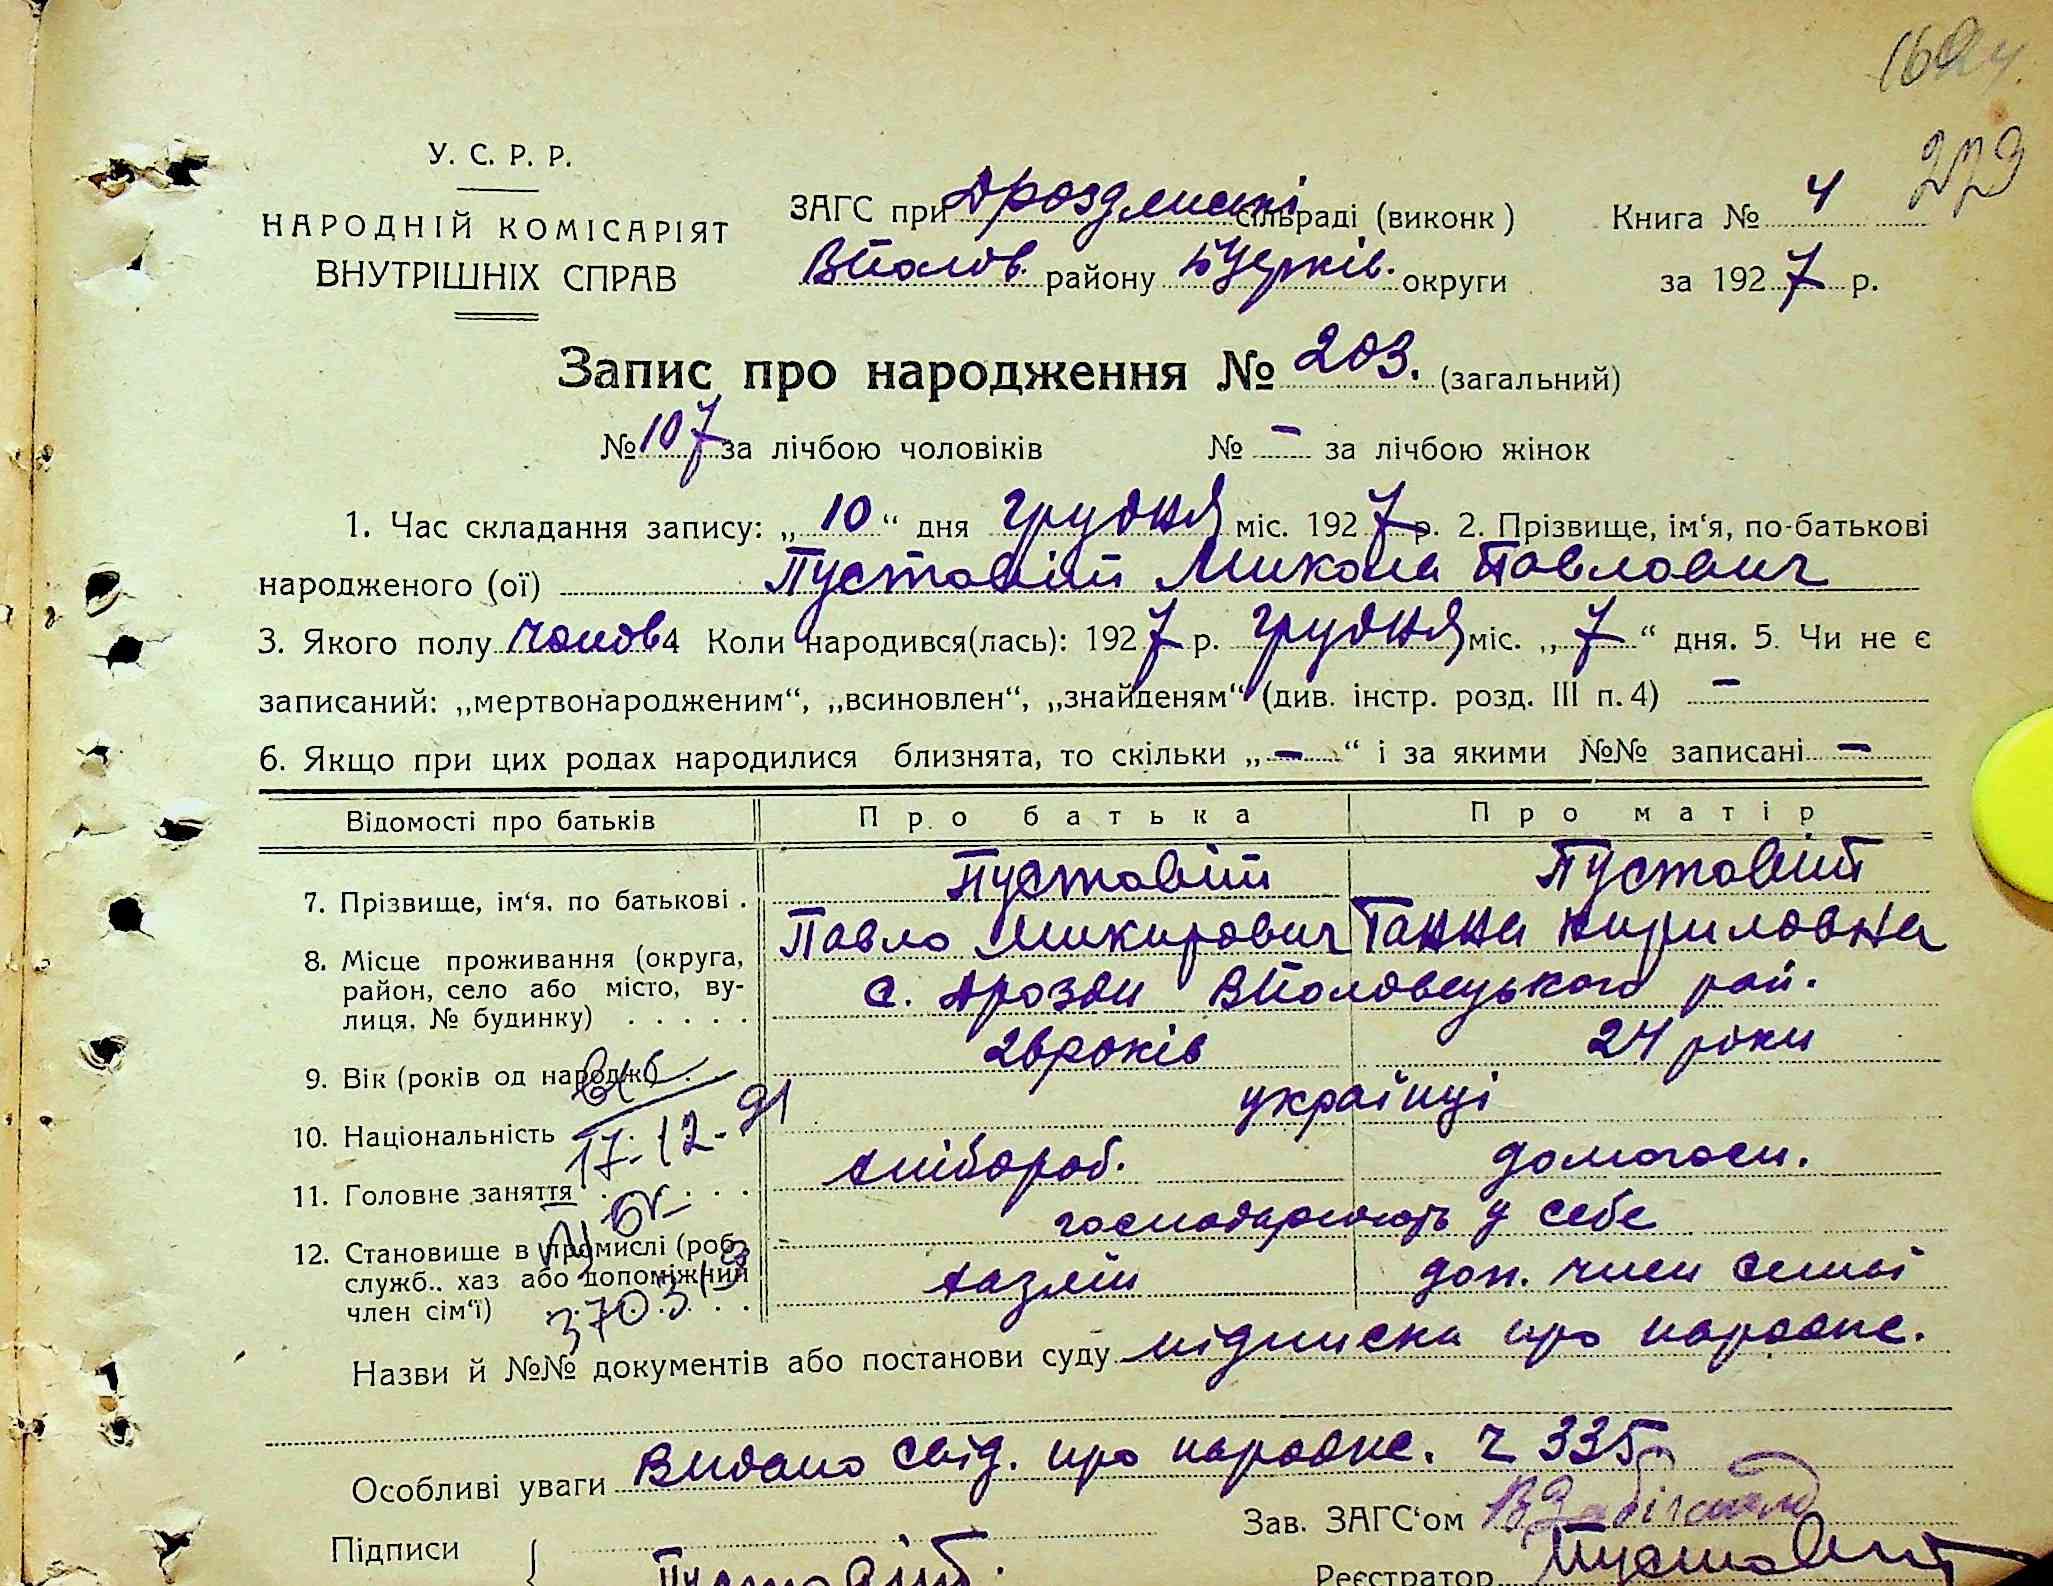 273
У. С. Р. Р.
НАРОДНІЙ КОМІСАРІЯТ
ВНУТРІШНІХ СПРАВ
ЗАГС при Дроздянскі сільраді (виконк) Книга № 4
ВПолов. району БЦерків. округи за 1927 р.
Запис про народження № 203. (загальний)
№ 107 за лічбою чоловіків № – за лічбою жінок
1. Час складання запису: „10“ дня грудня міс. 1927 р. 2. Прізвище, ім‘я, по-батькові
народженого (ої) Пустовіт Микола Павлович
3. Якого полу чолов 4 Коли народився(лась): 1927 р. грудня міс. „7“ дня. 5. Чи не є
записаний: „мертвонародженим“, „всиновлен“, „знайденям“ (див. інстр. розд. III п. 4) –
6. Якщо при цих родах народилися близнята, то скільки „–“ і за якими №№ записані –
Відомості про батьків Про батька Про матір
7. Прізвище, ім‘я, по батькові . Пустовіт Пустовіт
Павло Микирович Ганна Кириловна
8. Місце проживання (округа,
район, село або місто, ву-
лиця, № будинку) . . . . . с. Дрозди ВПоловецького рай.
9. Вік (років од народж.) 26 років 24 роки
10. Національність українці
17.12.91
11. Головне заняття . . . . хлібороб. домогосп.
господарюють у себе
12. Становище в промислі (роб.,
служб., хаз або допоміжний
член сім‘ї) . . хазяїн доп. член семьї
370313
Назви й №№ документів або постанови суду підписка про народже.
Особливі уваги Видано свід. про народже. ч 335
Зав. ЗАГС‘ом
Підписи Пустовіт.
Реєстратор Пустовіт